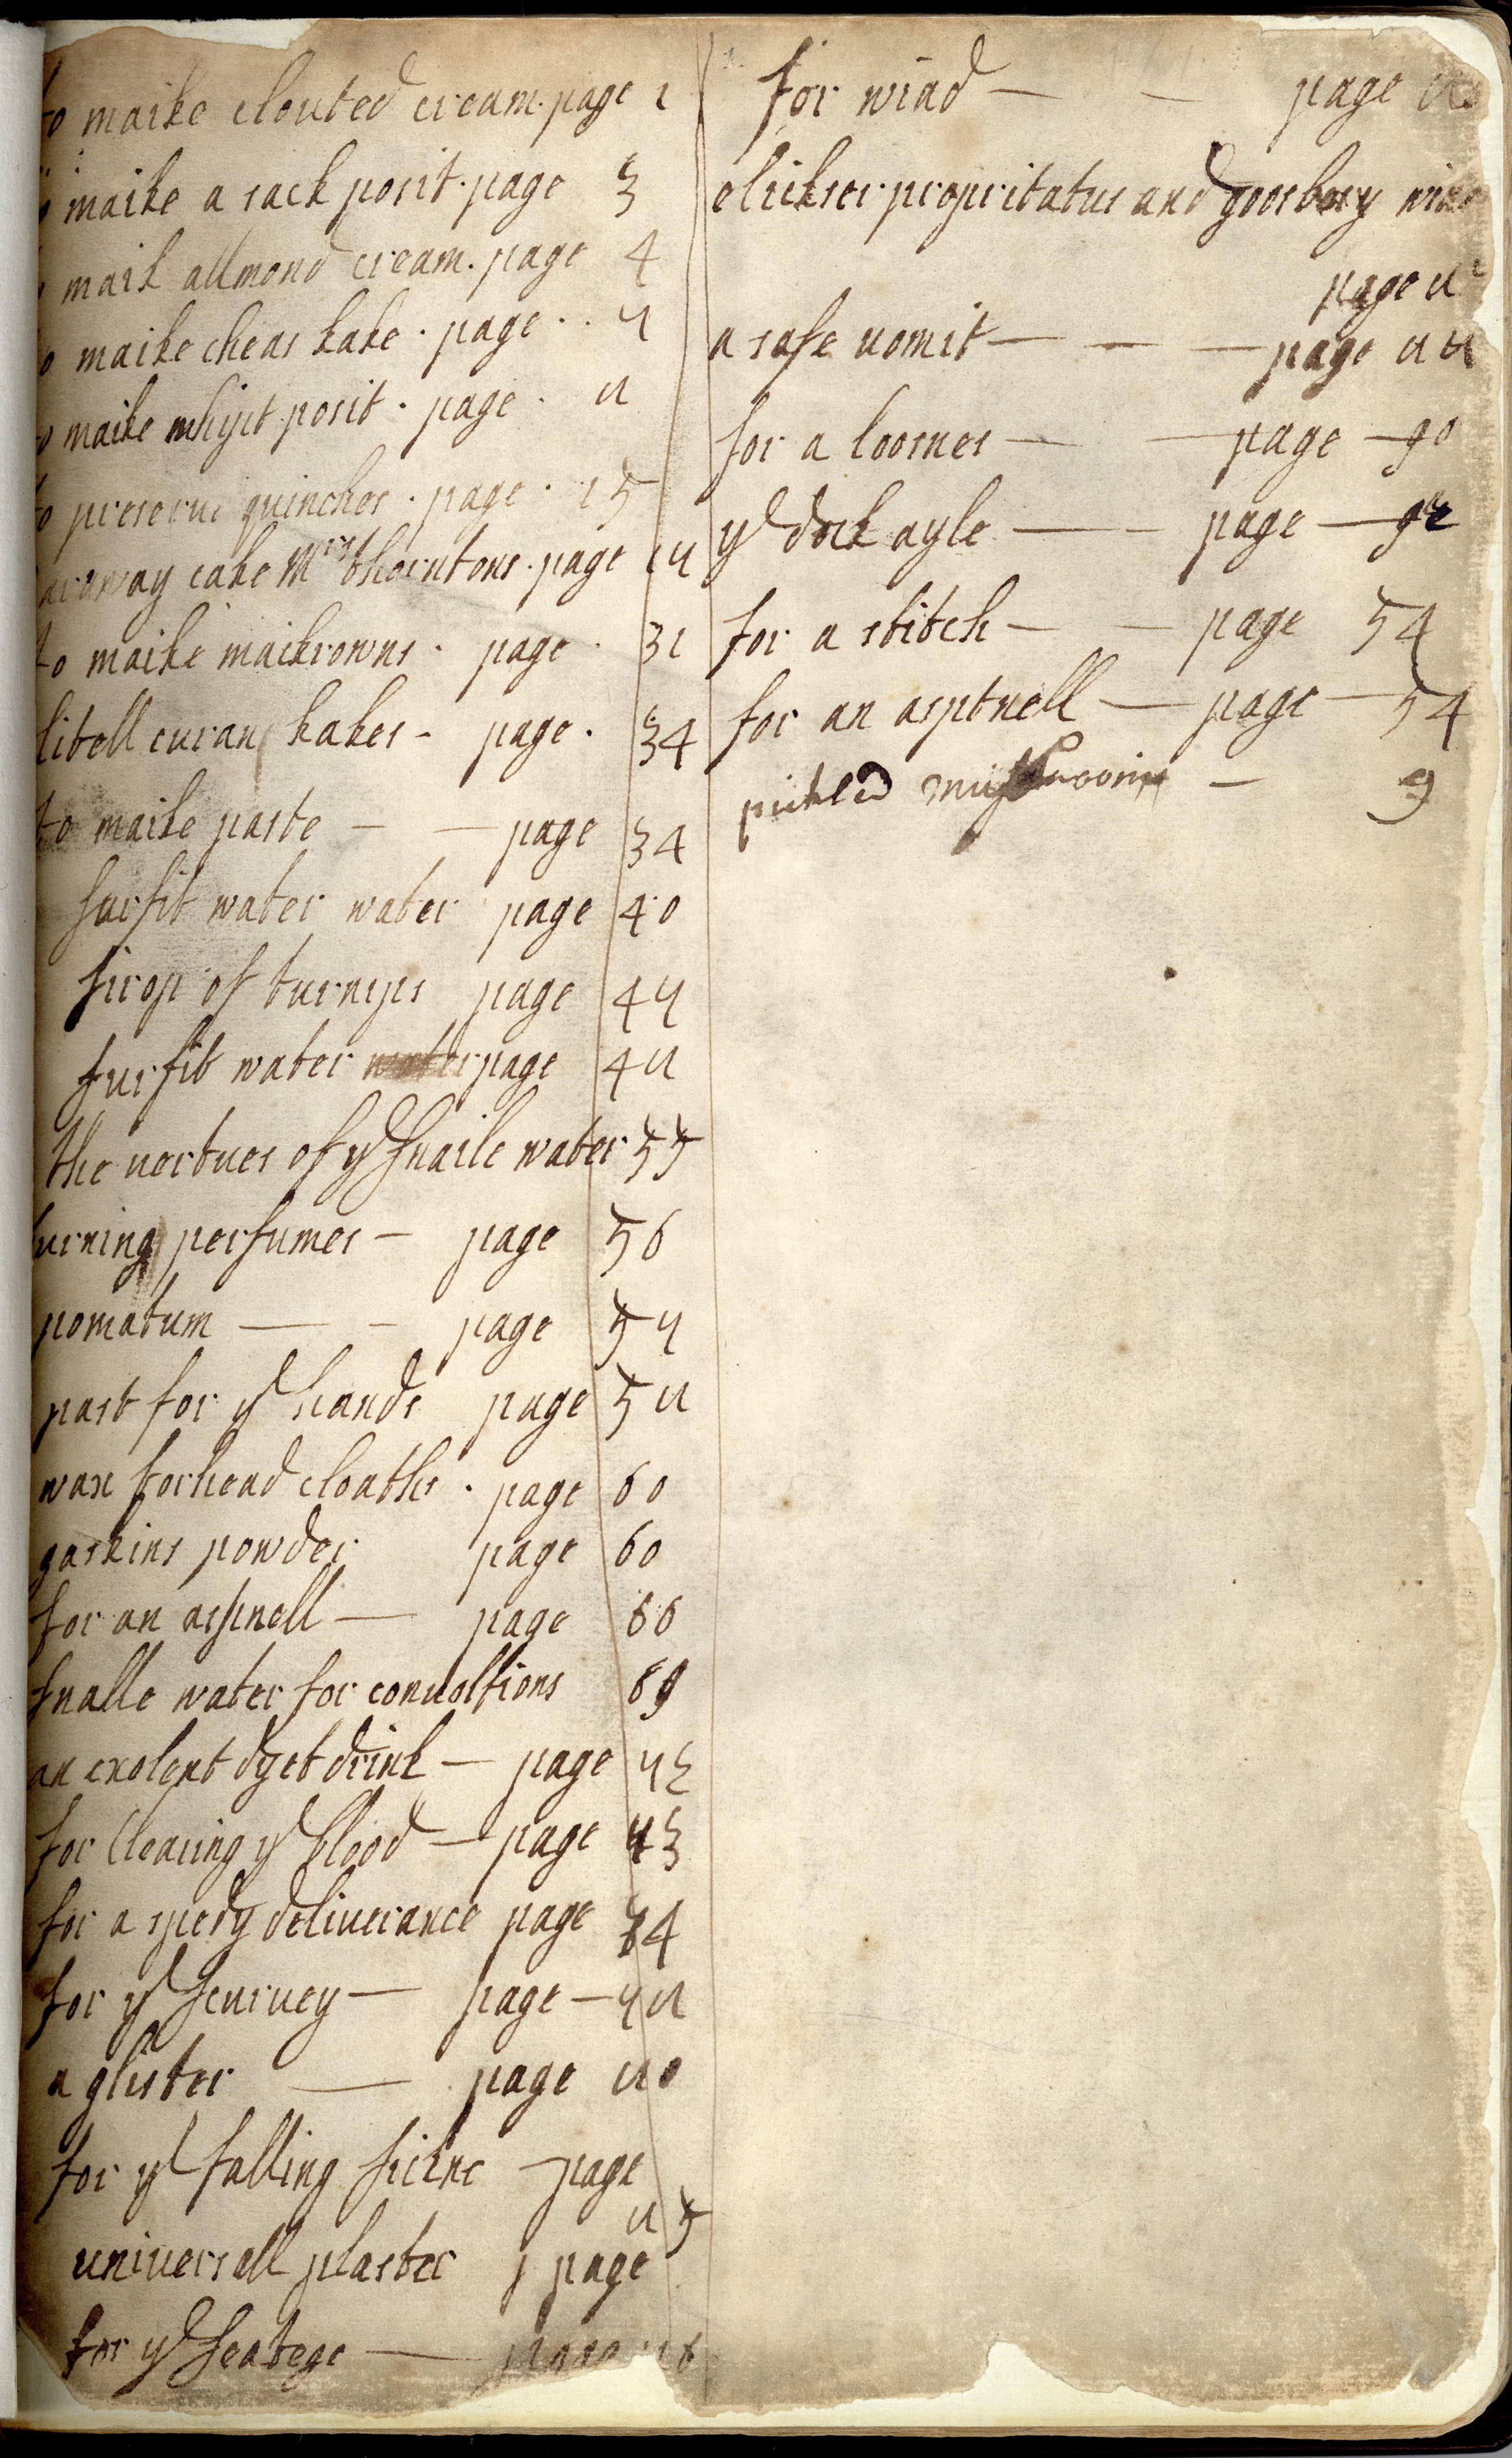 to maike clouted cream. page 1
to maike a sack posit. page 3
maik allmond cream. page 4
to maike cheas kake. page. . 7
to maike whipt posit. page. 8
to preserue quinches. page. 15
caroway cake Mrs thorntons. page 17
to maike maikrowns. page. 31
litell curan kakes - page. 34
to maike paste — — page 34
surfit water water page 40
sirop of turnips page 47
surfit water water page 48
the uertues of ye snaile water 55
burning perfumes — page 56
pomatum — — page 57
past for ye hands page 58
wax forhead cloaths. page 60
gaskins powder page 60
for an aspnell — page 66
snalle water for conuoltions 69
an exolent dyet drink — page 72
for Clearing ye blood — page 73
for a spedy deliuerance page 74
for ye scuruey — page — 78
a glister — page 80
for ye falling sickne page
85
uniuersall plaster page
for ye seatege — page 86
for wind — — page
elickser propritatus and goosbery wine
page
a safe uomit — — — page 88
for a loosnes — — page — 90
ye dock ayle — — page — 92
for a stitch — — page 54
for an asptnell — page — 54
pickled mushrooms — 9